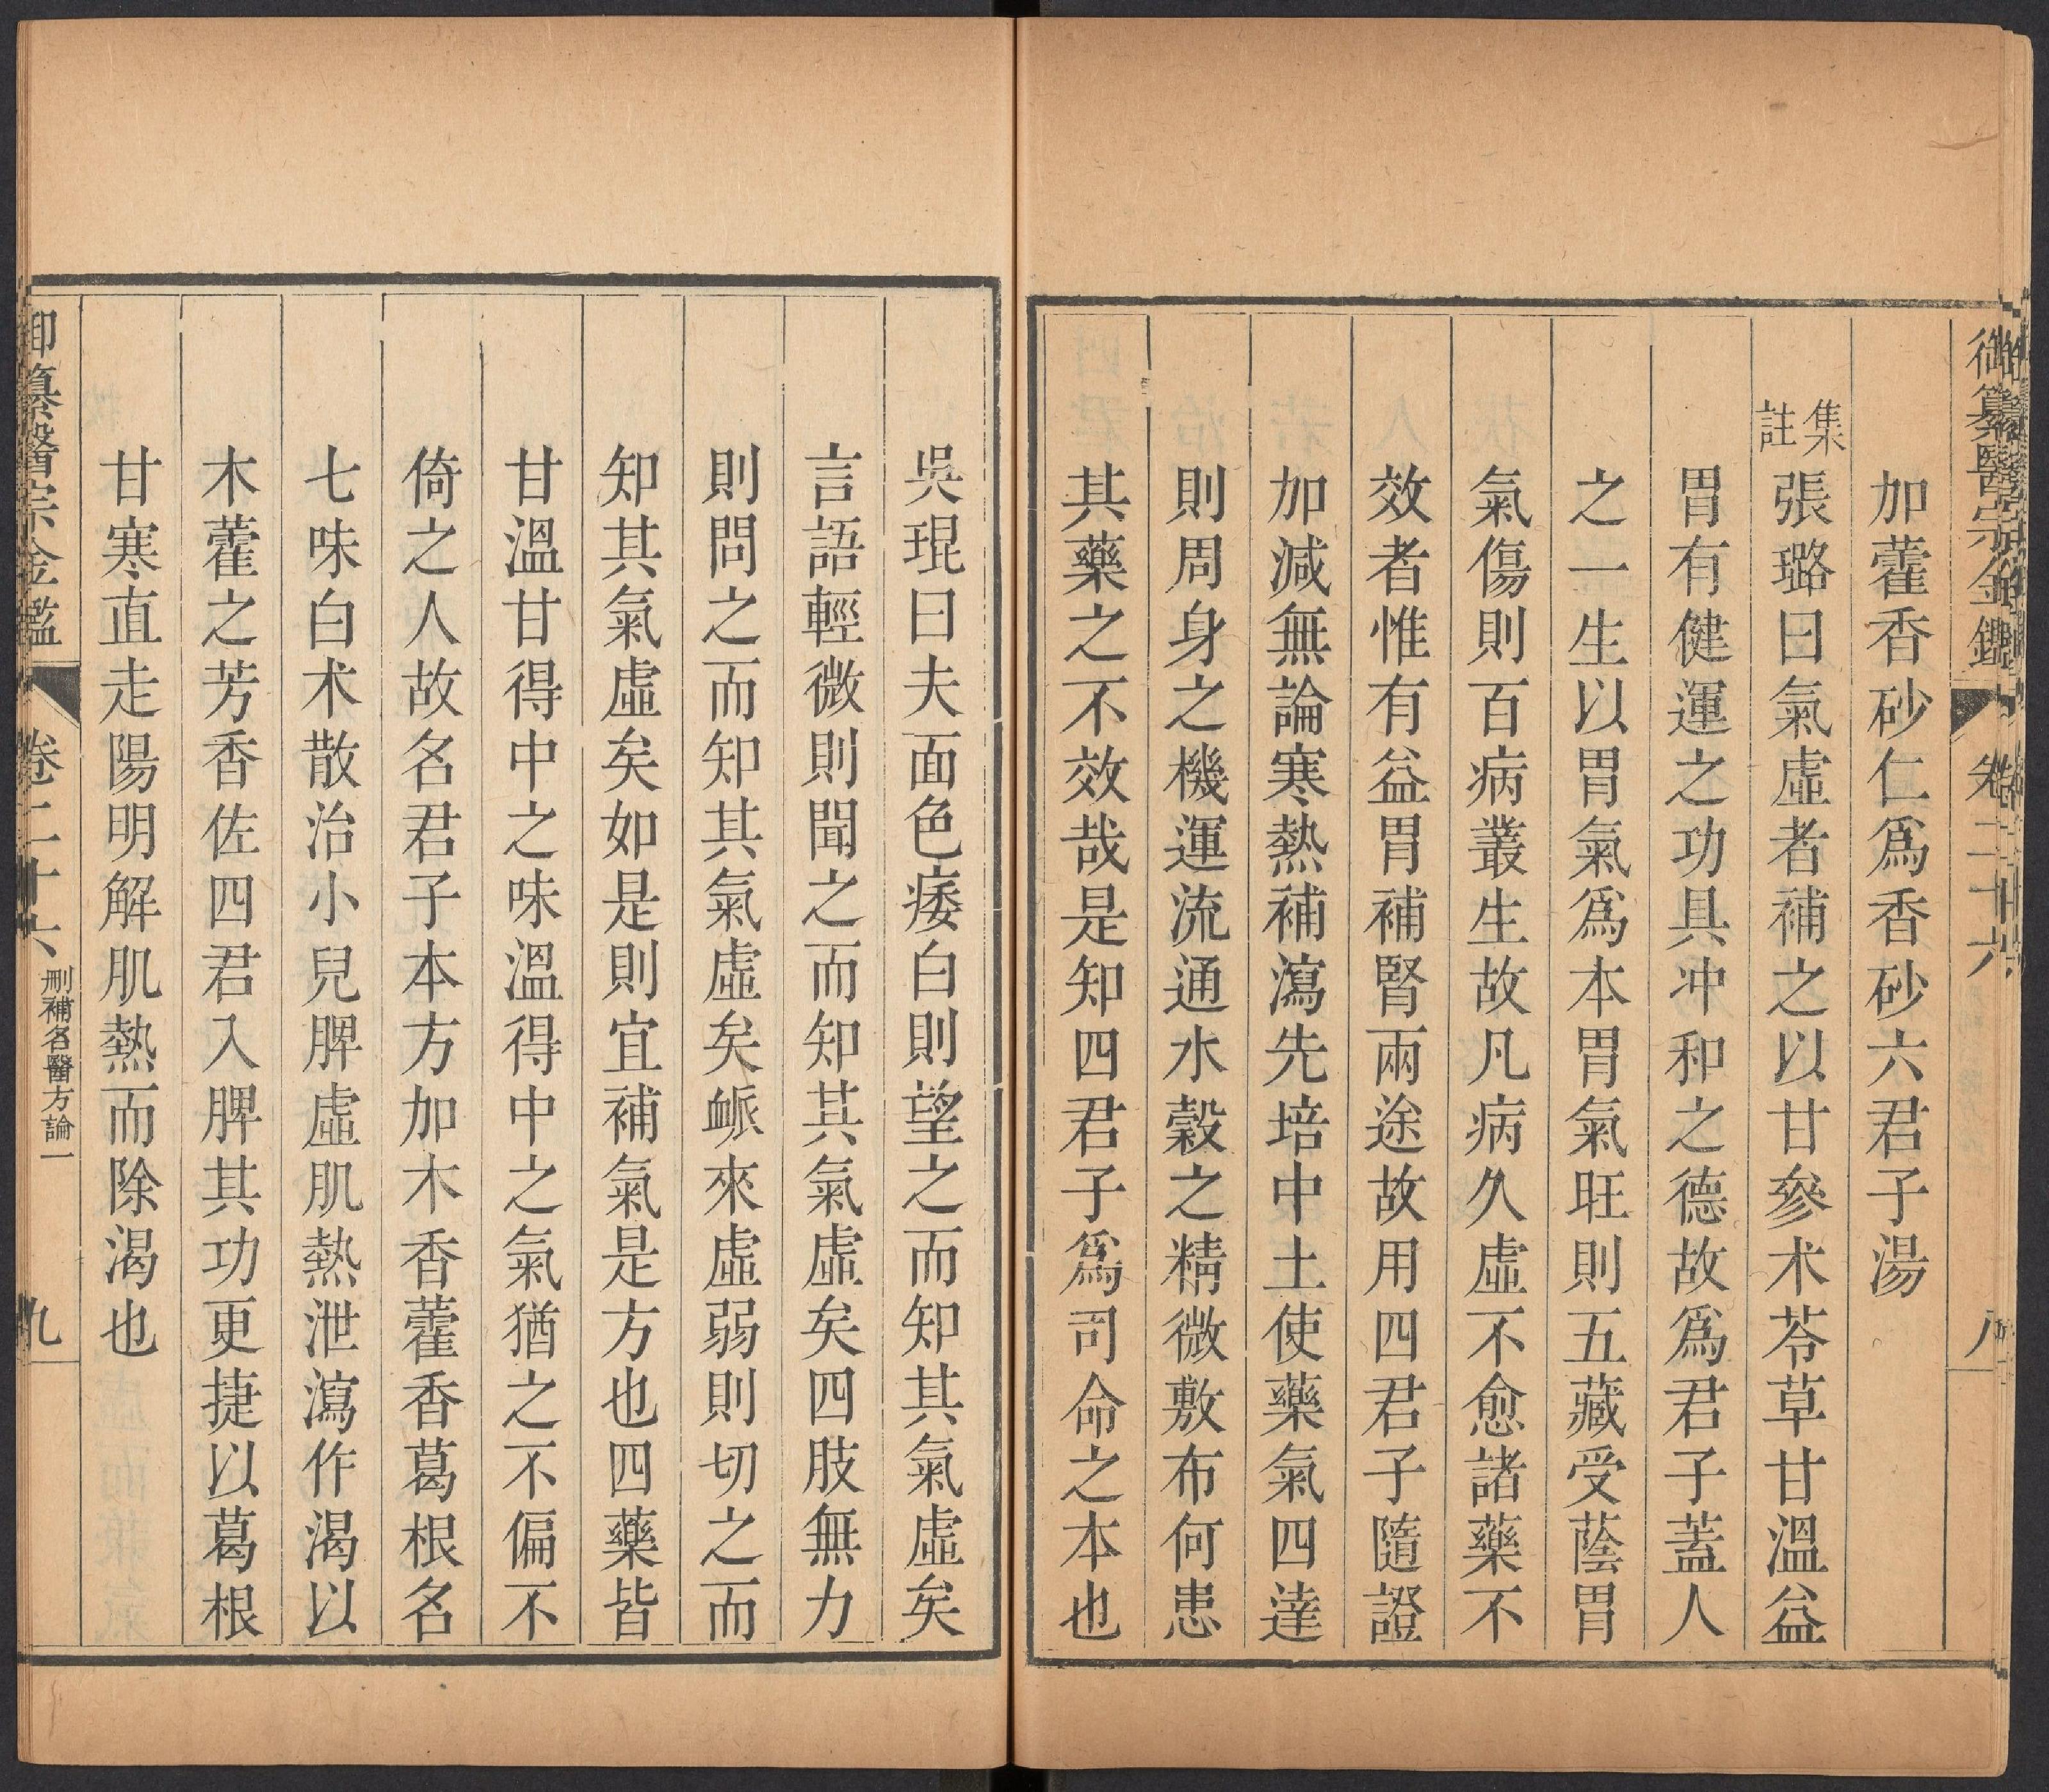 御纂醫宗金鑑 卷二十六 八
加藿香砂仁爲香砂六君子湯
集註張璐曰氣虛者補之以甘參术苓草甘溫益
胃有健運之功具冲和之德故爲君子蓋人
之一生以胃氣爲本胃氣旺則五藏受蔭胃
氣傷則百病叢生故凡病久虛不愈諸藥不
效者惟有益胃補腎兩途故用四君子隨證
加減無論寒熱補瀉先培中土使藥氣四達
則周身之機運流通水穀之精微敷布何患
其藥之不效哉是知四君子爲司命之本也
吳琨曰夫面色痿白則望之而知其氣虛矣
言語輕微則聞之而知其氣虛矣四肢無力
則問之而知其氣虛矣衇來虛弱則切之而
知其氣虛矣如是則宜補氣是方也四藥皆
甘溫甘得中之味溫得中之氣猶之不偏不
倚之人故名君子本方加木香藿香葛根名
七味白术散治小兒脾虛肌熱泄瀉作渴以
木藿之芳香佐四君入脾其功更捷以葛根
甘寒直走陽明解肌熱而除渴也
御纂醫宗金鑑 卷二十六 刪補名醫方論一 九